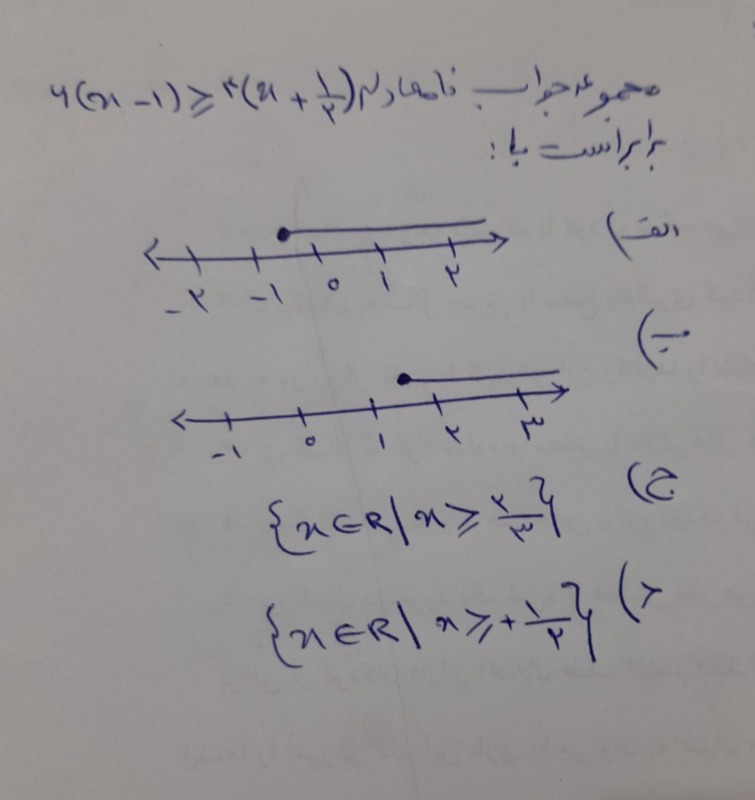 مجموعه جواب نامعادله ۶(x − ۱) ≥ ۲(x + ۱/۲)
برابراست با :
الف)
−۲ −۱ ۰ ۱ ۲
ب)
−۱ ۰ ۱ ۲ ۳
ج) {x ∈ R | x ≥ ۲/۳}
د) {x ∈ R | x ≥ +۱/۲}